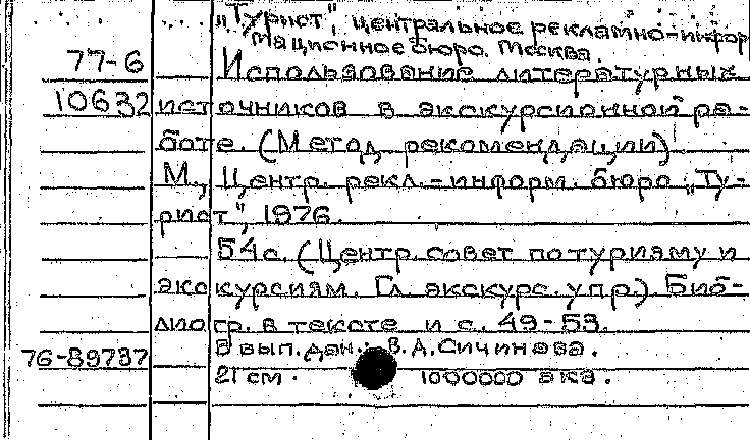 „Турист", центральное рекламно-инфор
мационное бюро. Москва.
77-6 Использование литературных
10632 источников в экскурсионной ра-
боте. (Метод. рекомендации)
М., Центр. рекл.-информ. бюро „Ту-
рист", 1976.
54с. (Центр. совет по туризму и
экскурсиям. Гл. экскурс. упр.). Биб-
лиогр. в тексте и с. 49-53.
76-89737 В вып. дан.: В.А.Сичинава.
21 см. 1000000 экз.